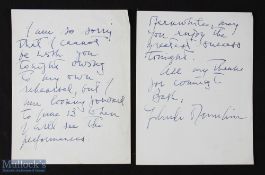 I am so sorry
that I cannot
be with you
tonight owing
to my own
rehearsal, but I
am looking forward
to June 13 when
I will see the
performances.
may
you enjoy the
greatest success
tonight.
All my thanks
for coming!
Mullock's